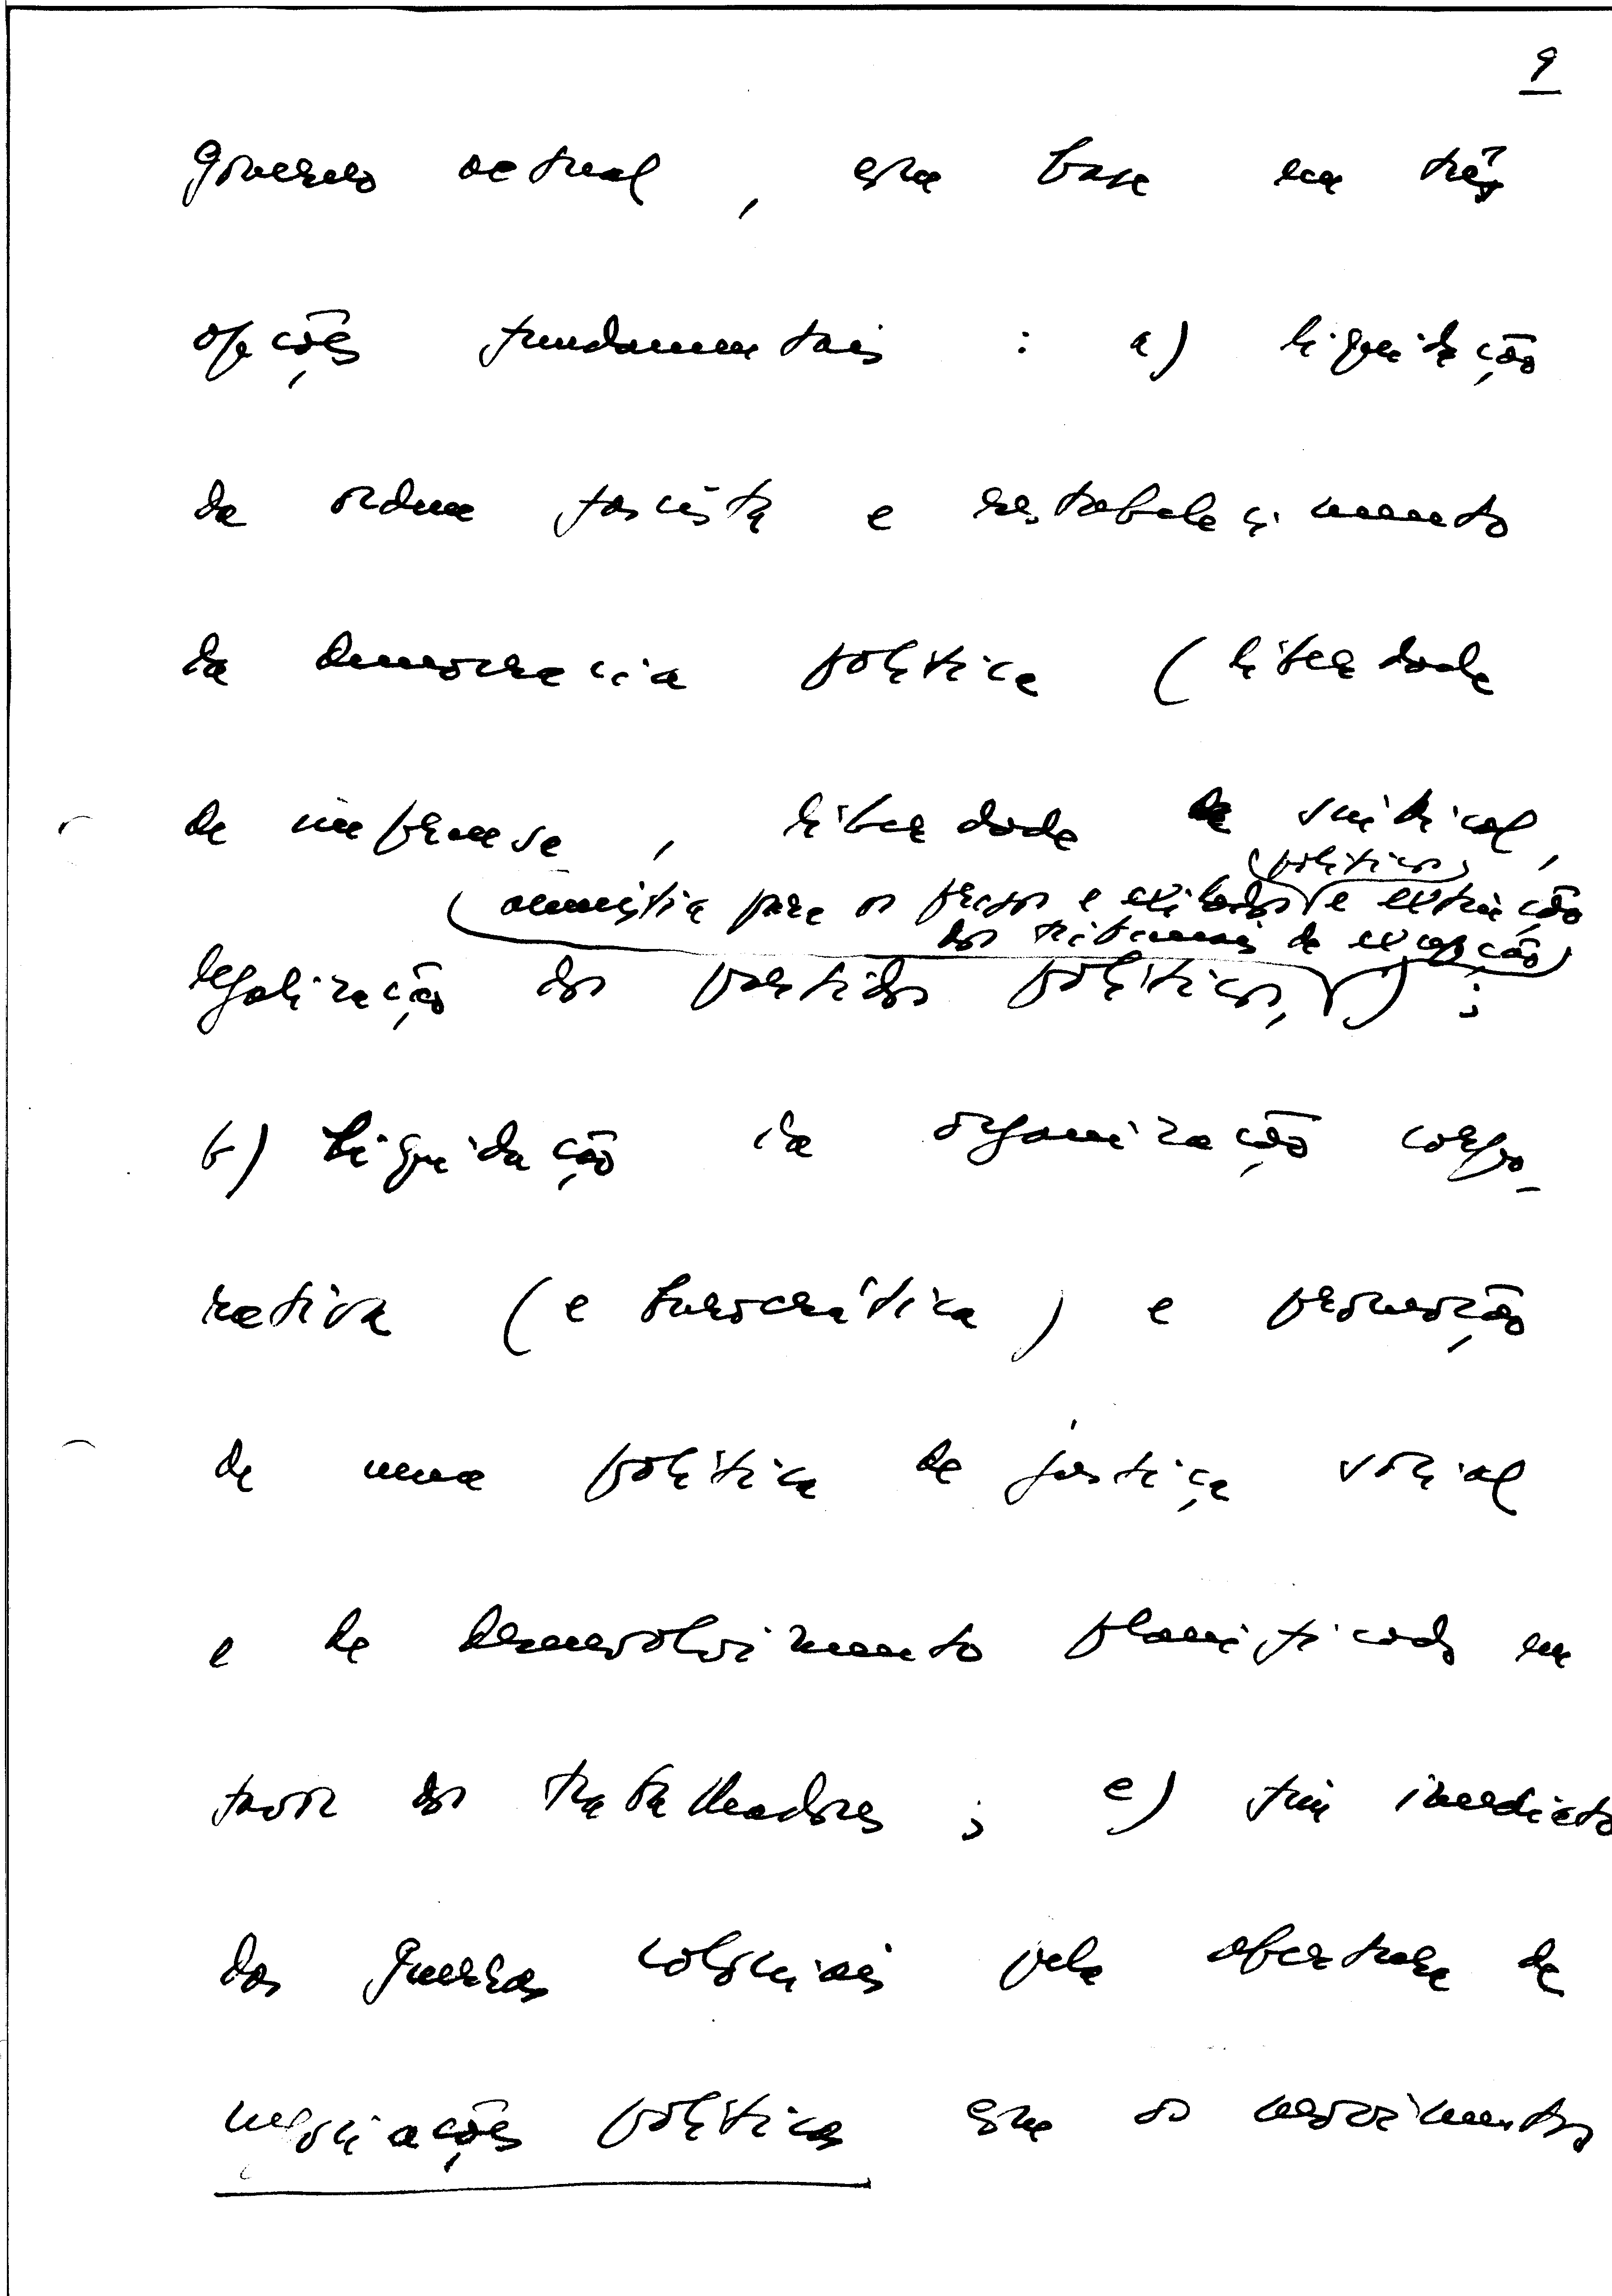 9
governo actual, com base em três
opções fundamentais : a) liquidação
da ordem fascista e restabelecimento
da democracia política (liberdade
de imprensa, liberdade de sindical,
políticos
amnistia para os presos e exilados e extinção
dos tribunais de excepção
legalização dos partidos políticos, ) ;
b) liquidação da organização corpo-
rativa (e burocrática) e promoção
de uma política de justiça social
e de desenvolvimento planificado em
favor dos trabalhadores ; c) fim imediato
das guerras coloniais pela abertura de
negociações políticas com os movimentos